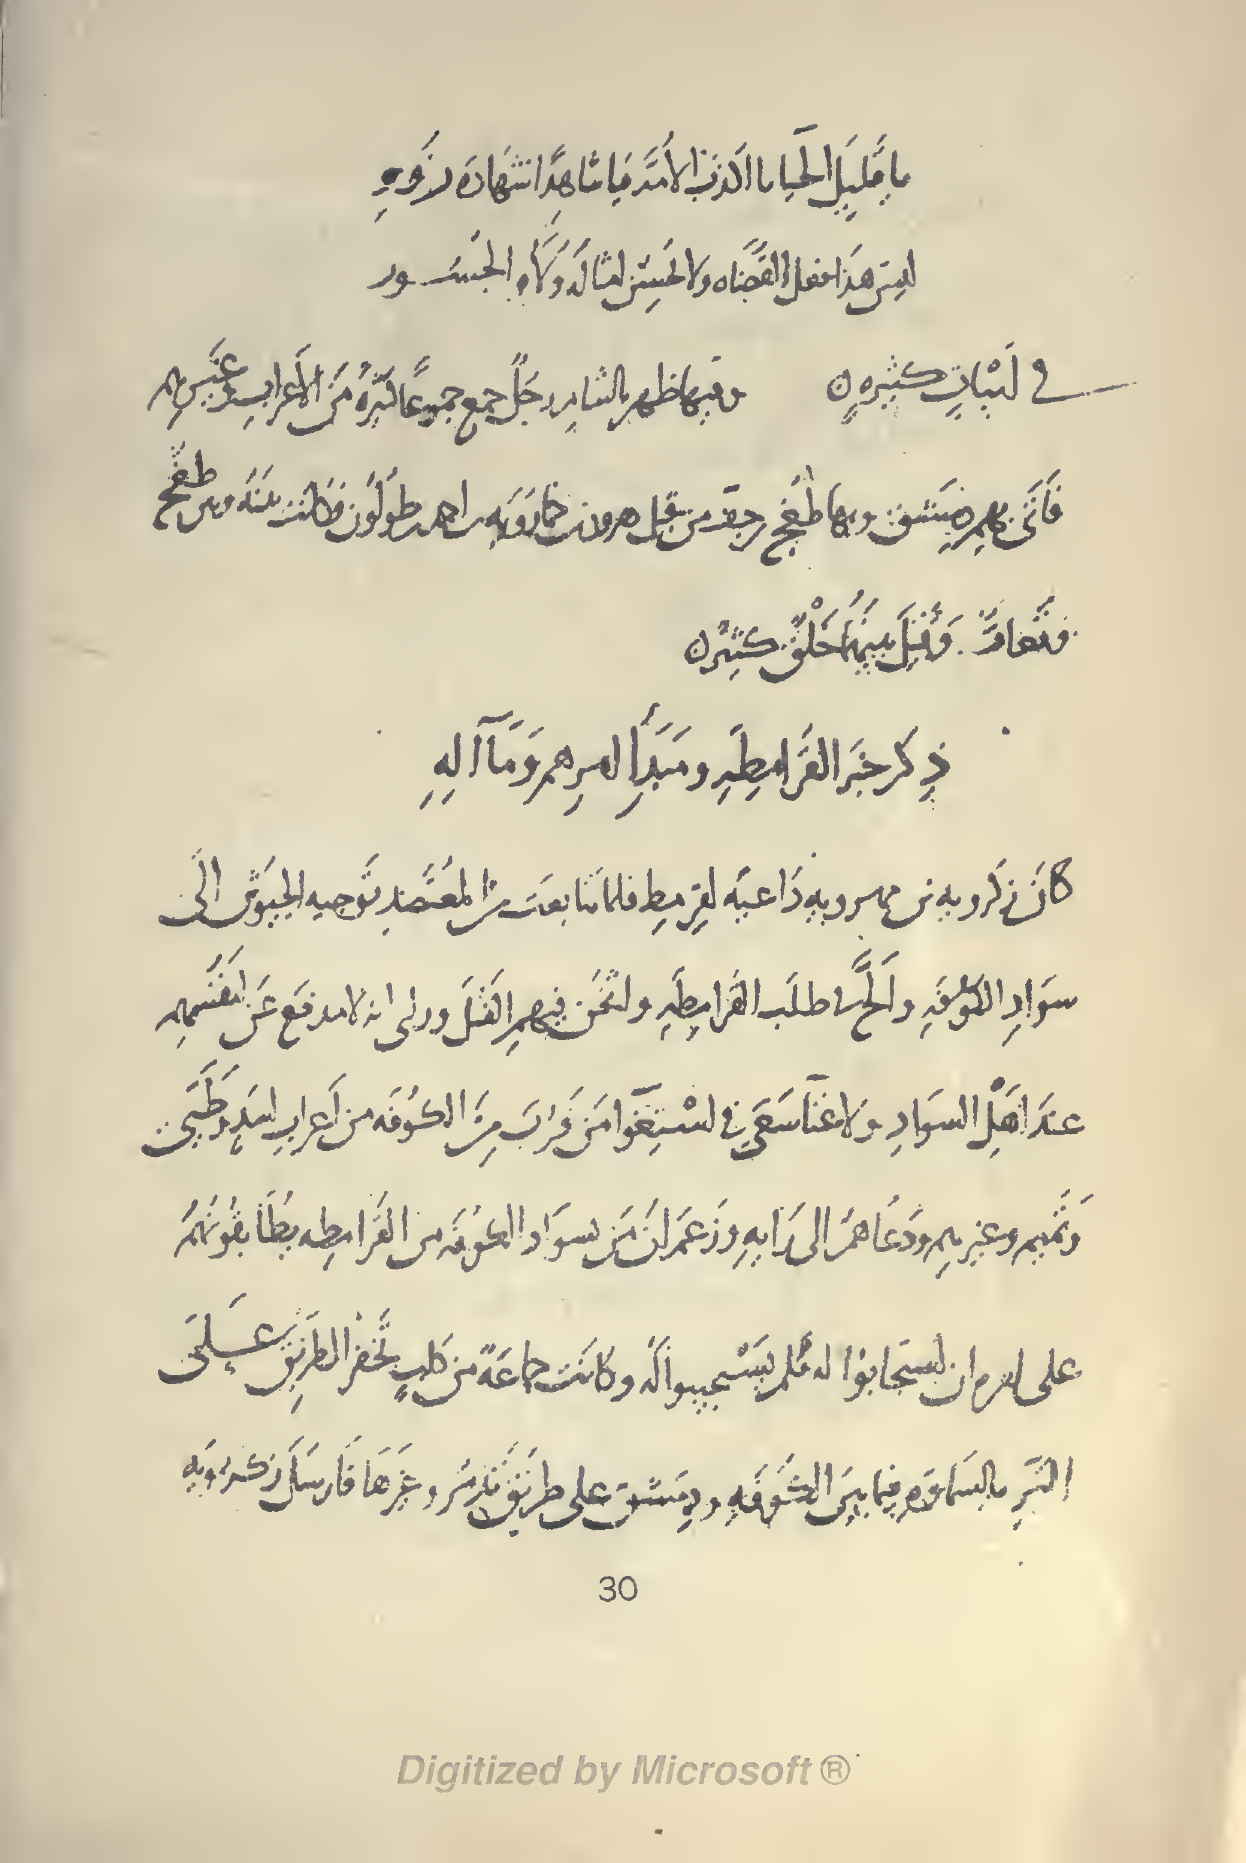 يا قليل الحيا يا اكذب الأمة يا شاهدًا شهادة زورِ
ليس هذا فعل القضاه ولا تحسن امثاله ولاه الجسور
في ابياتٍ كثيرهٍ وفيها ظهر بالشام رجلٌ جمع جموعًا كثيرةً من الأعراب وغيرهم
فأتى بهم دمشق وبها طغج بن جف من قبل هرون بن خمارويه بن احمد بن طولون فكانت بينه وبين طغج
وقعات وقتل بينهما خلقٌ كثير
ذِكر خبَر القَرامِطَهِ ومَبدَأ امرِهم وَما آل اليه
كان زكرويه بن مهرويه داعيه لقرمط فلما تتابعت من المعتضد توجيه الجيوش الى
سَوادِ الكوفَهِ والَحَّ في طلَب القَرامِطَهِ واثخن فيهم القتل وراى انه لا مدفع عن انفسهم
عند اهل السوادِ ولا غنآ سعى في استغوا من قرب من الكوفه من أعراب اسدٍ وطيئ
وتميم وغيرهم ودعاهم الى رايه وزعم ان من بسواد الكوفه من القرامطه يطابقونهم
على امره ان استجابوا له فلم يستجيبوا له وكانت جماعةً من كلبٍ تخفر الطريق على
البر بالسماوه فيما بين الكوفه ودمشق على طريق تدمر وغيرها فارسل زكرويه
30
Digitized by Microsoft ®